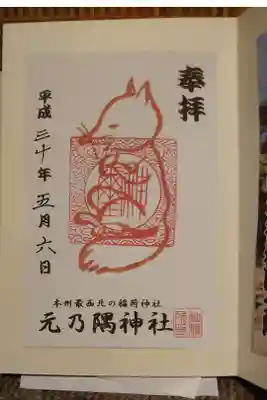 奉拝
平成三十年五月六日
本州最西北の稲荷神社
元乃隅神社